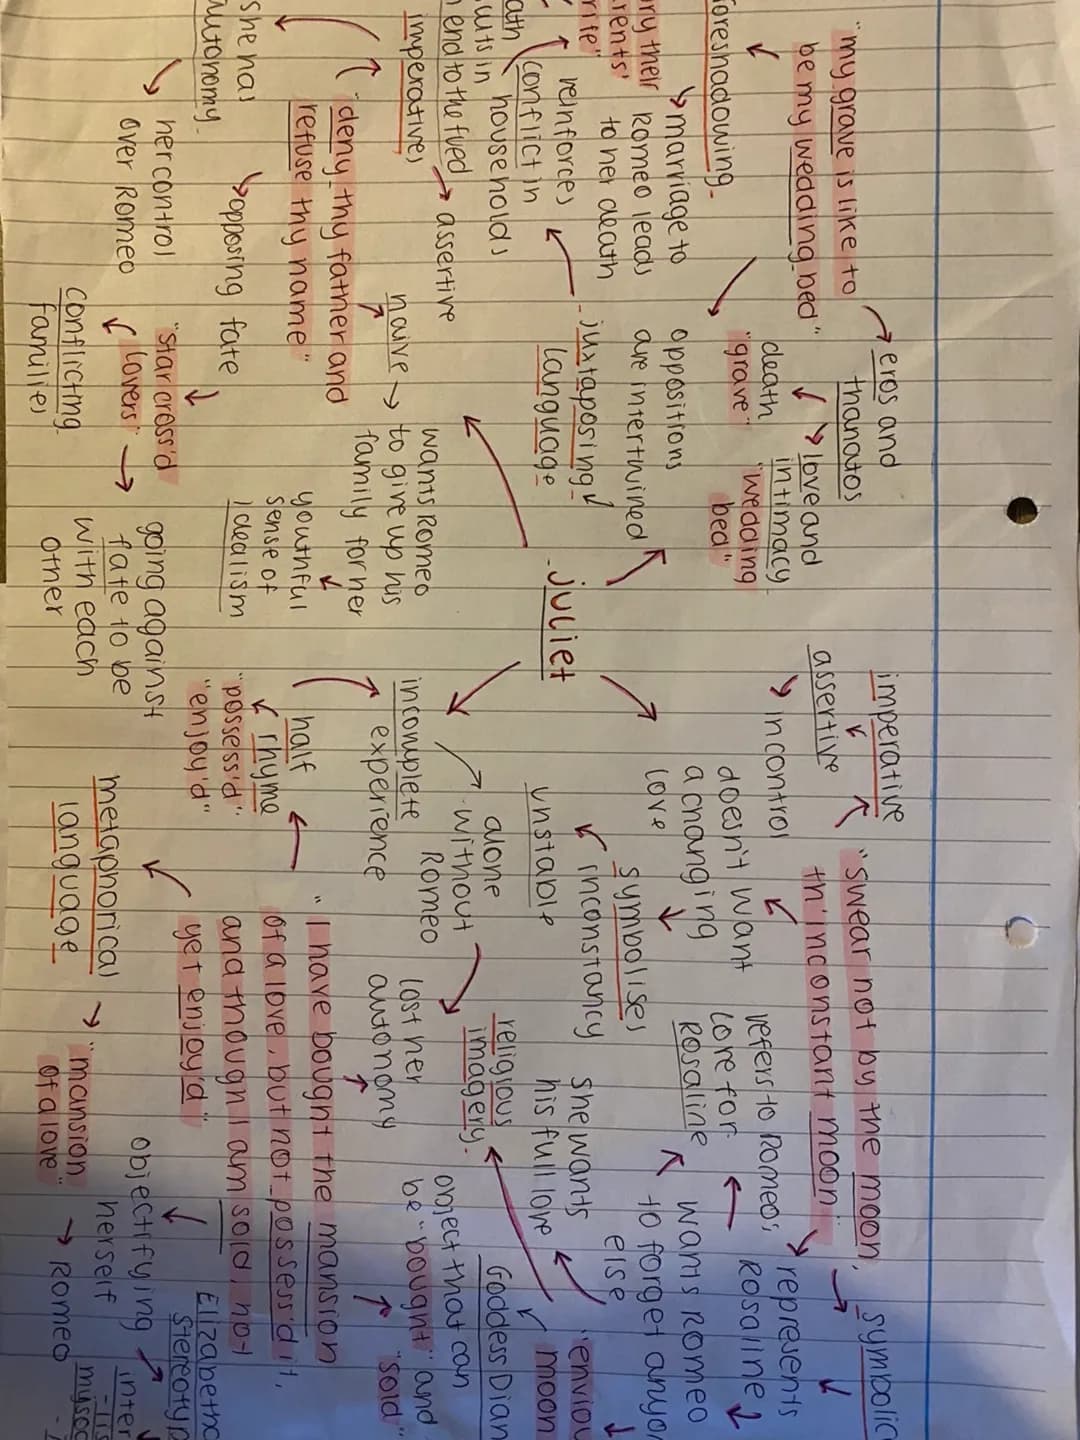 "my grave is like to
be my wedding bed"
foreshadowing
marriage to
Romeo leads
to her death
eros and
thanatos
death
"grave"
love and
intimacy
"wedding
bed"
oppositions
are intertwined
juxtaposing
language
reinforces
conflict in
households
end to the fued
imperatives
assertive
"deny thy father and
refuse thy name"
she has
autonomy
her control
over Romeo
opposing fate
"star cross'd
lovers"
conflicting
families
going against
fate to be
with each
other
naive
wants Romeo
to give up his
family for her
youthful
sense of
idealism
- juliet
imperative
assertive
in control
"swear not by the moon,
th'inconstant moon"
doesn't want
a changing
love
symbolises
inconstancy
unstable
symbolic
represents
Rosaline
refers to Romeo's
love for
Rosaline
wants Romeo
to forget
else
she wants
his full love
moon
Goddess
religious
imagery
alone
without
Romeo
incomplete
experience
half
rhyme
"possess'd"
"enjoy'd"
"I have bought the mansion
of a love, but not possess'd it,
and though I am sold, not
yet enjoy'd"
lost her
autonomy
object that can
be "bought" and
"sold"
metaphorical
language
"mansion
of a love"
Romeo
objectifying
herself